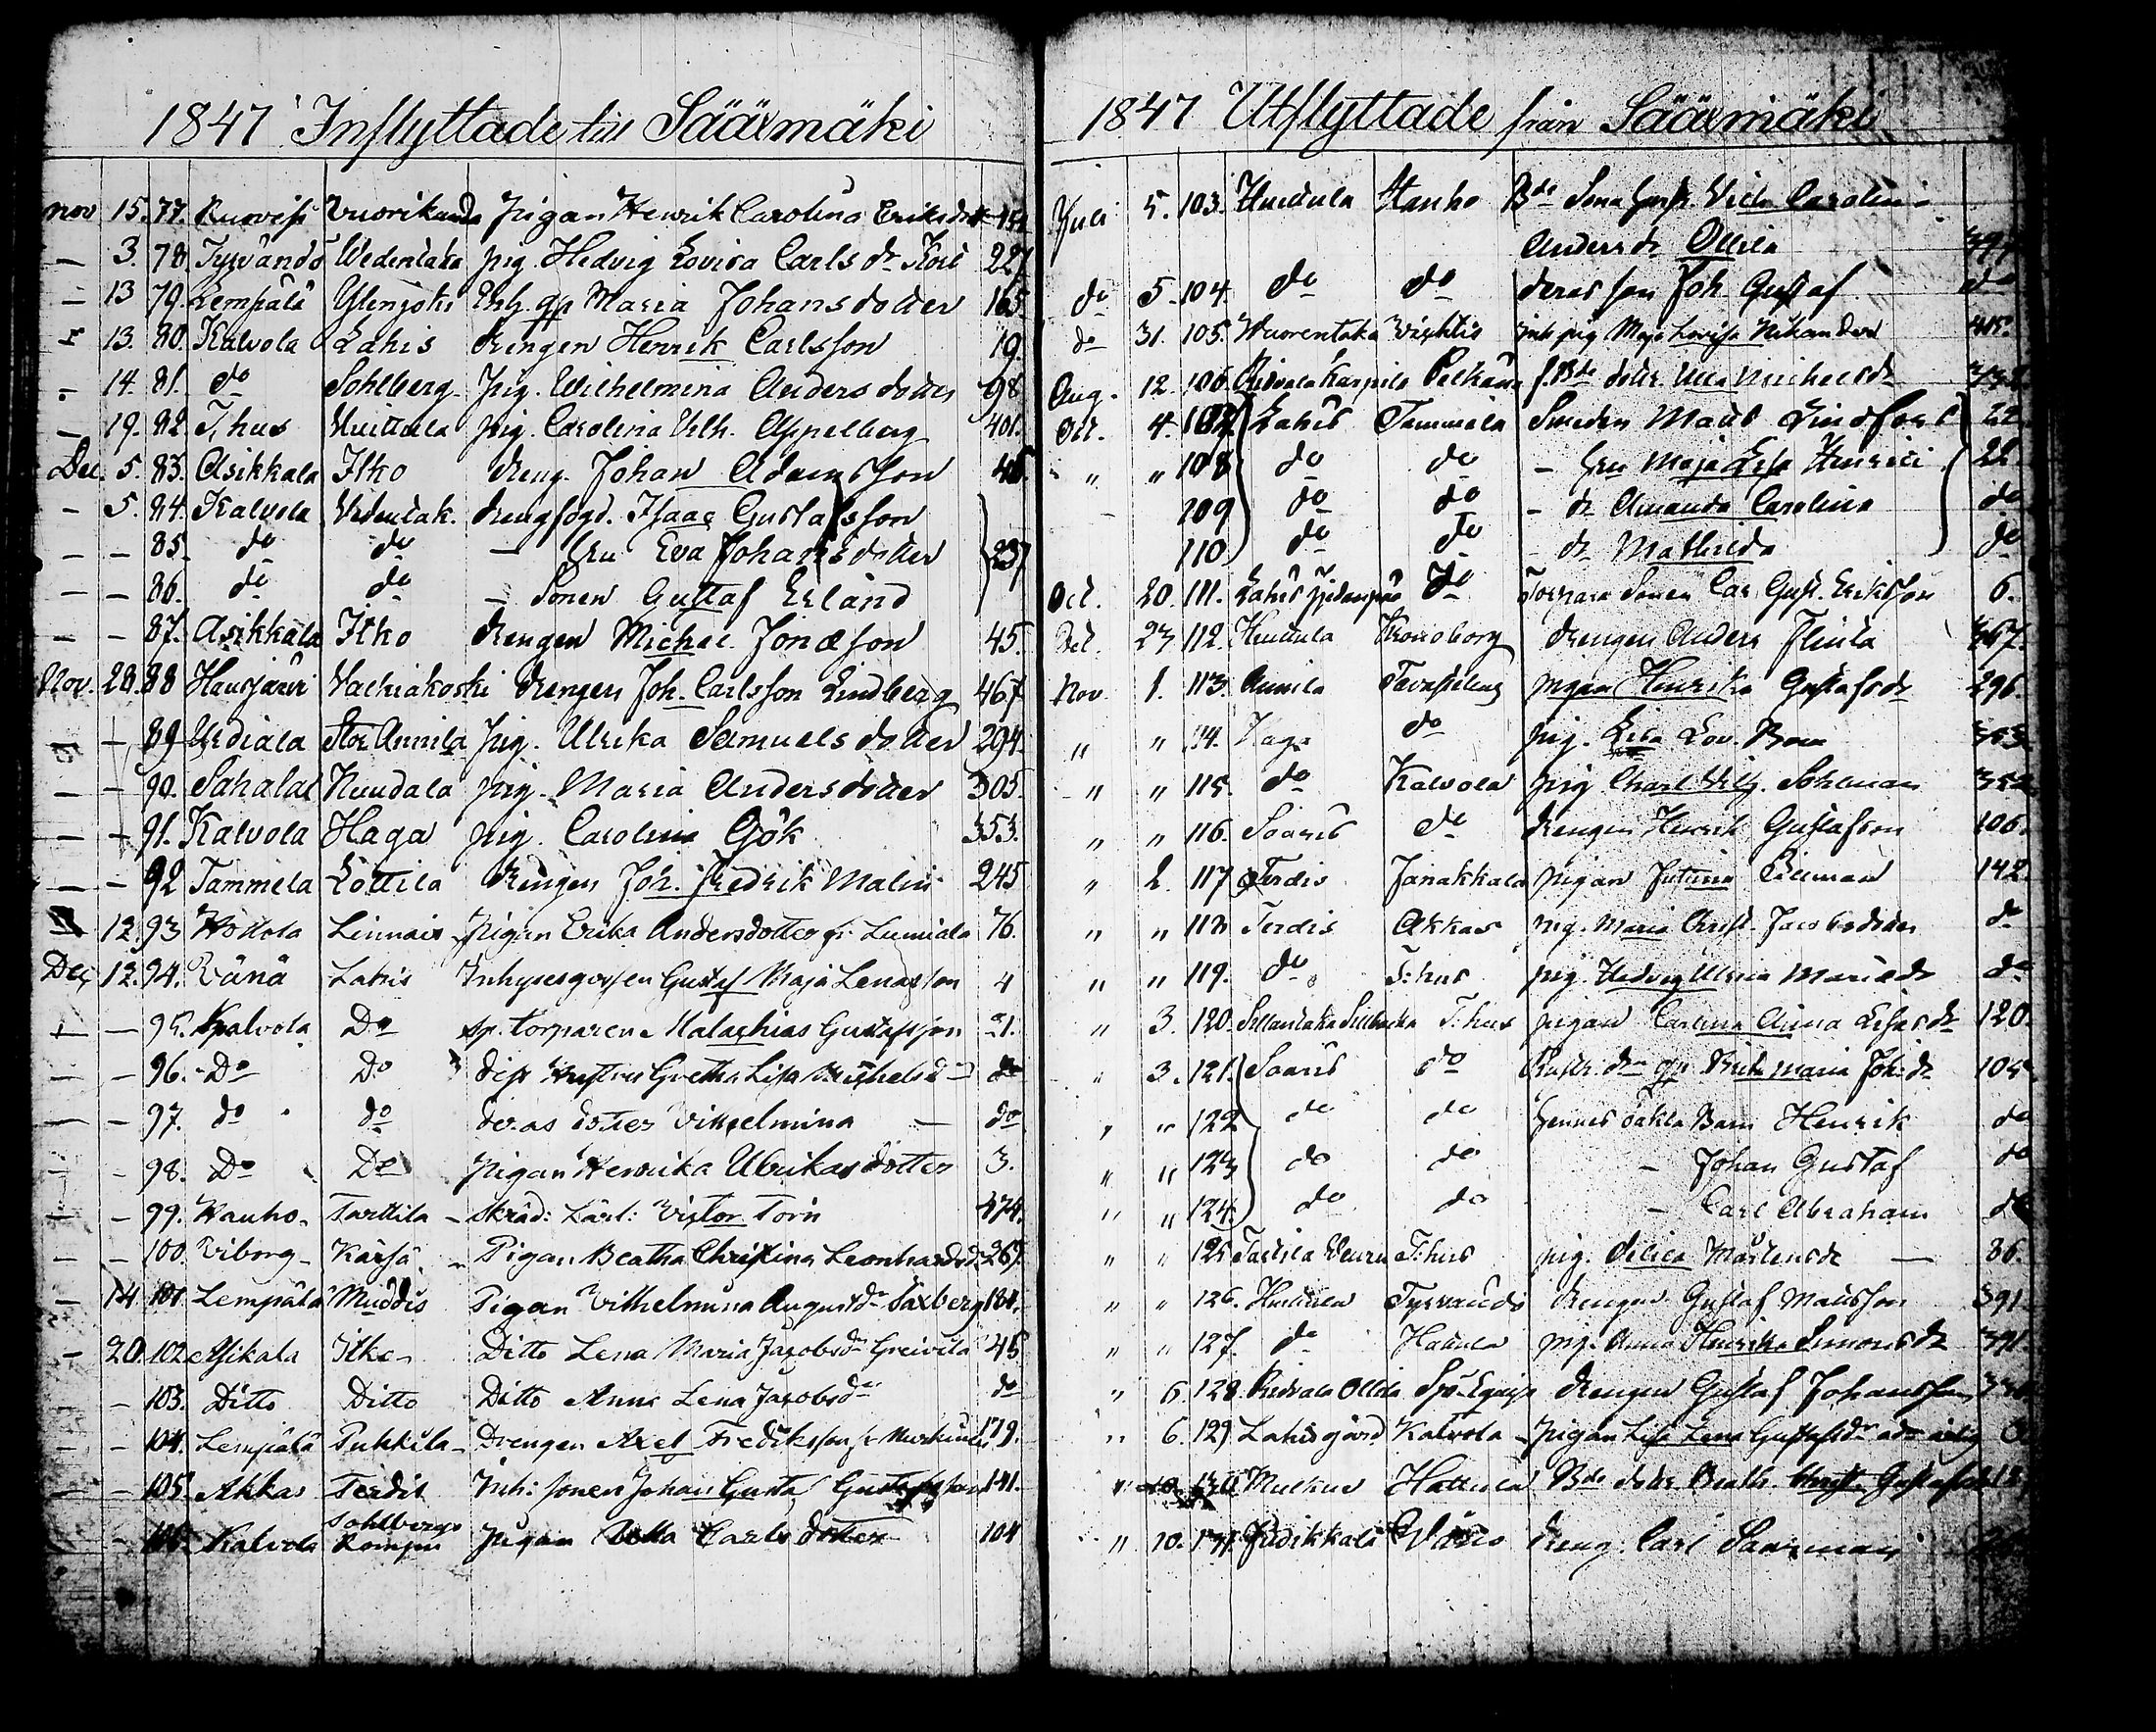 1847 Inflyttade till Sääxmäki
nov 15. 77. Ruovesi Vuorikunda Pigan Henrik Carolina Eriksdr
— 3. 78. Tyrvändö Wedentaka pig. Hedvig Lovisa Carls dr 227
— 13 79. Lempälä Ylenjoki Inh. gp Maria Johansdotter 165.
13. 80. Kalvola Lahis drengen Henrik Carlsson 19.
14. 81. do Sohlberg Pig. Wilhelmina Andersdotter 98.
— 19. 82. T. hus Huittula pig. Carolina Vilh. Appelberg 401.
Dec. 5. 83. Asikkala Itko dreng. Johan Adamsson 46.
— 5. 84. Kalvola Vedentak. drengfogd. Isaac Gustafsson
— — 85. do do — hru Eva Johansdotter 237
— — 86. do do — Sonen Gustaf Erland
— — 87. Asikkala Itko drengen Michel Jonasson 45.
Nov. 28. 88 Hausjärvi Valkiakoski drengen Joh. Carlsson Lindberg 467
— — 89 Urdiala Stor Annila pig. Ulrika Samuelsdotter 294.
— — 90. Sahalax Huudala pig. Maria Andersdotter 305.
— — 91. Kalvola Haga pig. Carolina Gök 353.
— — 92 Tammela Lottila drengen Joh. Fredrik Malin 245
12. 93 Hollola Linnais Pigan Erika Andersdotter fr. Lumiala 76.
Dec. 12. 94. Vånå Lahis Inhysesgossen Gustaf Maja Lenasson 4
— 95. Kalvola Do sp. torparen Malachias Gustafsson 21.
— — 96. Do Do dess hustru Gretha Lisa Michelsd. do
— — 97. do do deras dotter Vilhelmina — do
— — 98. Do Do Pigan Henrika Ulrikasdotter 3.
— — 99. Hauho Tarttila skräd: Lärl: Victor Torn 474.
— — 100. Viborg Kärsä Pigan Beatha Christina Leonhardsdr 267.
— 14. 101. Lempälä Muddis Pigan Vilhelmina Augustdr Saxberg 184.
— 20. 102. Asikala Itko Ditto Lena Maria Jacobsdr 45
— 103. Ditto Ditto Ditto Anna Lena Jacobsdr do
— — 104. Lempälä Puhkila Drengen Axel Fredriksson 179.
— — 105. Akkas Terdis Inh: sonen Johan Gustaf Gustafsson 141.
— 106. Kalvola Sohlbergs Kompni Pigan Ulla Carlsdotter 104
1847 Utflyttade från Sääxmäki
Juli 5. 103. Huidula Hauho Bde Sona hust. Carolina
Andersdr Ottilia
do 5. 104. do do deras son Joh. Gustaf do
do 31. 105. Wuorentaka Vichtis inh pig Maja Lovisa Nikander 415.
Aug. 12. 106. Ridvala Karpila Pelkäne f. Bde dotr. Ulla Michelsdr
Oct. 4. 107. Lahis Tammela Smeden Mats Lindfors 22
" " 108 do do — hru Maja Lisa Henrici 22
109 do do — dr Amanda Carolina do
110. do do — dr Mathilda do
Oct. 20. 111. Lahis do Torpare Sonen Car. Gust. Eriksson 6.
Oct. 23 112. Huidula Kronoborg drengen Anders Flinta 367.
Nov. 1. 113. Annila Tavastehus pigan Henrika Gustafsdr 296.
" " 114. Haga do pig. Lisa Lov.
" " 115. do Kalvola pig Charl. Vilh. Sohlman
" " 116. Saaris do drengen Henrik Gustafson 106.
" 2. 117 Terdis Janakkala pigan 142
" " 118 Terdis Akkas pig. Maria Christ. Jacobsdotter do
" " 119. do T: hus pig. Hedvig Ulrica Mariædr do
" 3. 120. T: hus pigan Carlina Anna Lisasdr 120.
" 3. 121. Saaris do Maria Joh. dr 105.
" " 122 do do hennes oäkta Barn Henrik do
" " 123 do do — Johan Gustaf do
" " 124. do do — Carl Abraham do
" " 125 T: hus pig. Mårtensdr — 86.
" " 126. Huidula Tyrvändö drengen Gustaf Matsson 391.
" " 127. do Hattula pig. Anna Henrika Simonsdr 391
" 6. 128. Ridvala Ollila drengen Gustaf Johansson
" 6. 129. Lahis gård Kalvola Pigan Lisa Lena Gustafsdr
" 130 Hattula Bde dotr. Beath. Christ. Gustafsdr
" 10. 131. dreng. Carl